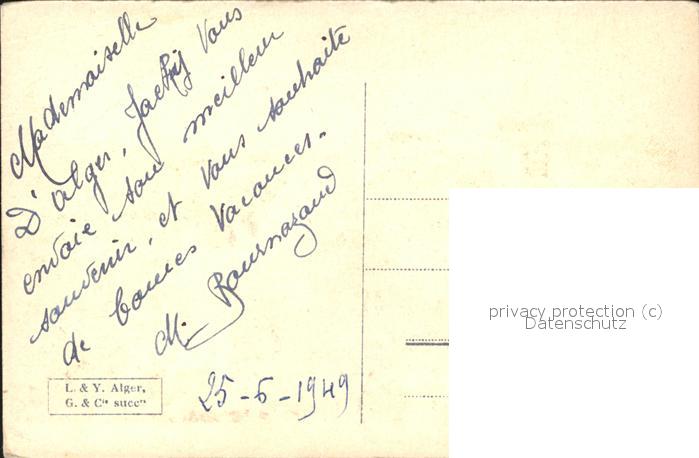 Mademoiselle
D'Alger, Jacky vous
envoie son meilleur
souvenir, et vous souhaite
de bonnes vacances.
M. Bournazaud
25-6-1949
L. & Y. Alger,
G. & Cie succrs
privacy protection (c)
Datenschutz